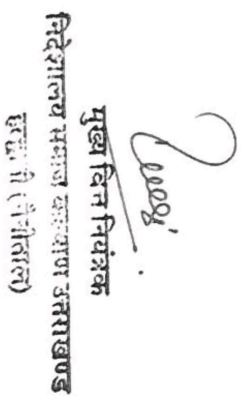 मुख्य वित्त नियंत्रक
निदेशालय समाज कल्याण उत्तराखण्ड
हल्द्वानी (नैनीताल)